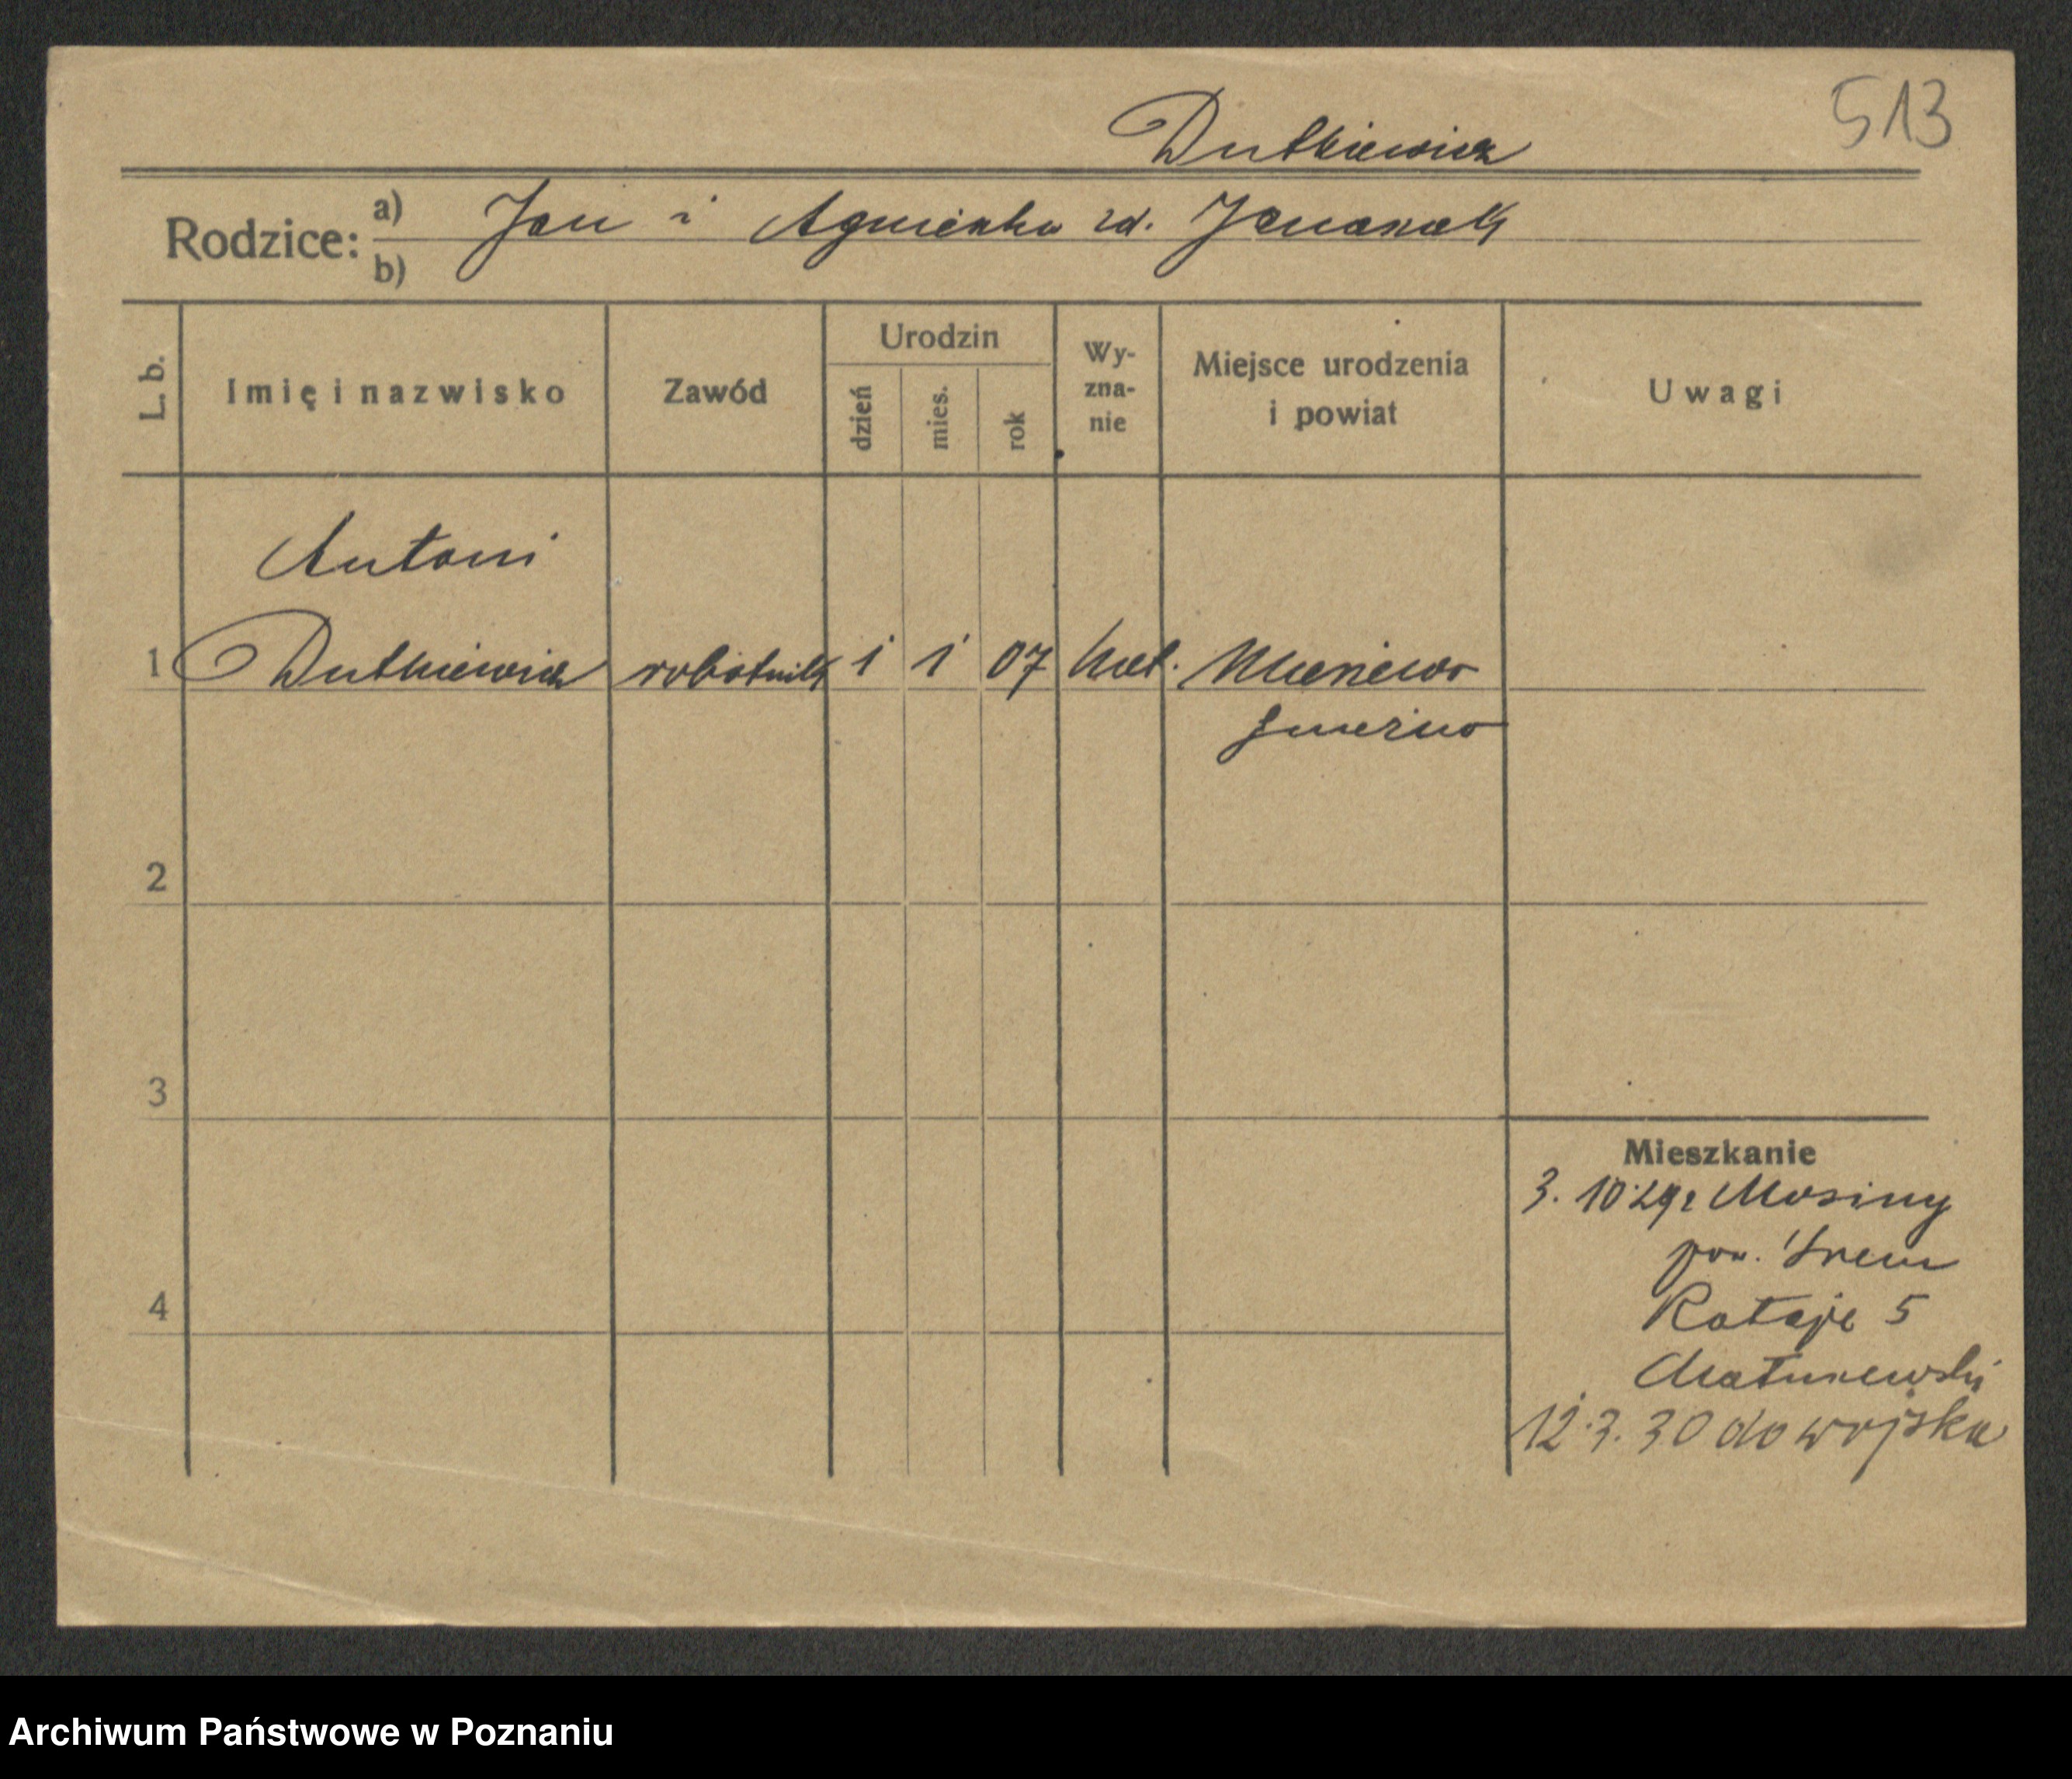 513
Dutkiewicz
Rodzice: a) Jan i Agnieszka zd. Januszak
b)
L. b.
Imię i nazwisko
Zawód
Urodzin
dzień
mies.
rok
Wy-
zna-
nie
Miejsce urodzenia
i powiat
Uwagi
Antoni
1 Dutkiewicz robotnik 1 1 07 kat.
2
3
4
Mieszkanie
3. 10 29 z Mosiny
pow. Śrem
Rataje 5
Matuszewski
12.3.30 do wojska
Archiwum Państwowe w Poznaniu